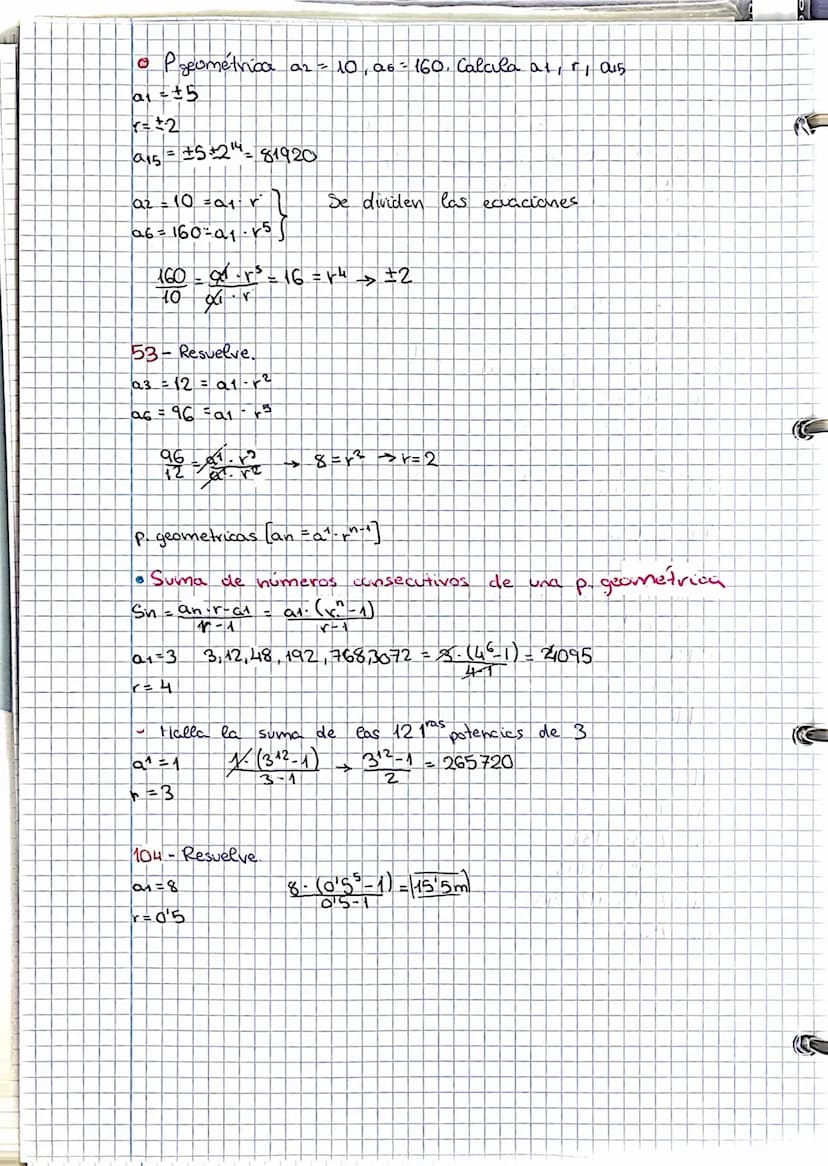 P geométrica a2 = 10, a6 = 160. Calcula a1, r, a15
a1 = ±5
r = ±2
a15 = ±5·±2^14 = 81920
a2 = 10 = a1 · r } Se dividen las ecuaciones
a6 = 160 = a1 · r^5
160/10 = a1 · r^5 / a1 · r = 16 = r^4 → ±2
53 - Resuelve.
a3 = 12 = a1 · r^2
a6 = 96 = a1 · r^5
96/12 = a1 · r^5 / a1 · r^2 → 8 = r^3 → r = 2
p. geometricas [an = a^1 · r^n-1]
• Suma de números consecutivos de una p. geométrica
Sn = an · r - a1 / r - 1 = a1 · (r^n - 1) / r - 1
a1 = 3 3, 12, 48, 192, 768, 3072 = 3 · (4^6 - 1) / 4-1 = 4095
r = 4
- Halla la suma de las 12 1^ras potencias de 3
a^1 = 1 1 · (3^12 - 1) / 3 - 1 → 3^12 - 1 / 2 = 265720
r = 3
104 - Resuelve
a1 = 8 8 · (0'5^5 - 1) / 0'5 - 1 = 15'5m
r = 0'5